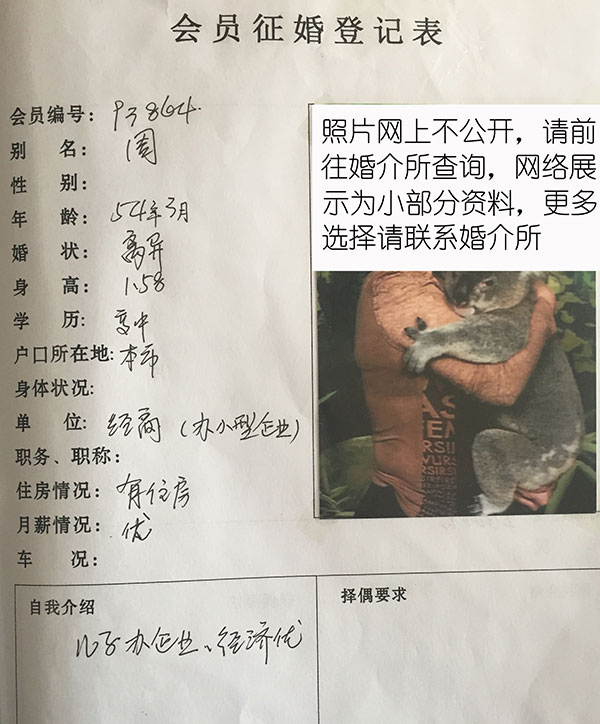 会员征婚登记表
会员编号: 93864
别 名: 周
性 别:
年 龄: 54年3月
婚 状: 离异
身 高: 1.58
学 历: 高中
户口所在地: 本市
身体状况:
单 位: 经商（办小型企业）
职务、职称:
住房情况: 有住房
月薪情况: 优
车 况:
照片网上不公开，请前
往婚介所查询，网络展
示为小部分资料，更多
选择请联系婚介所
自我介绍
儿子办企业、经济优
择偶要求